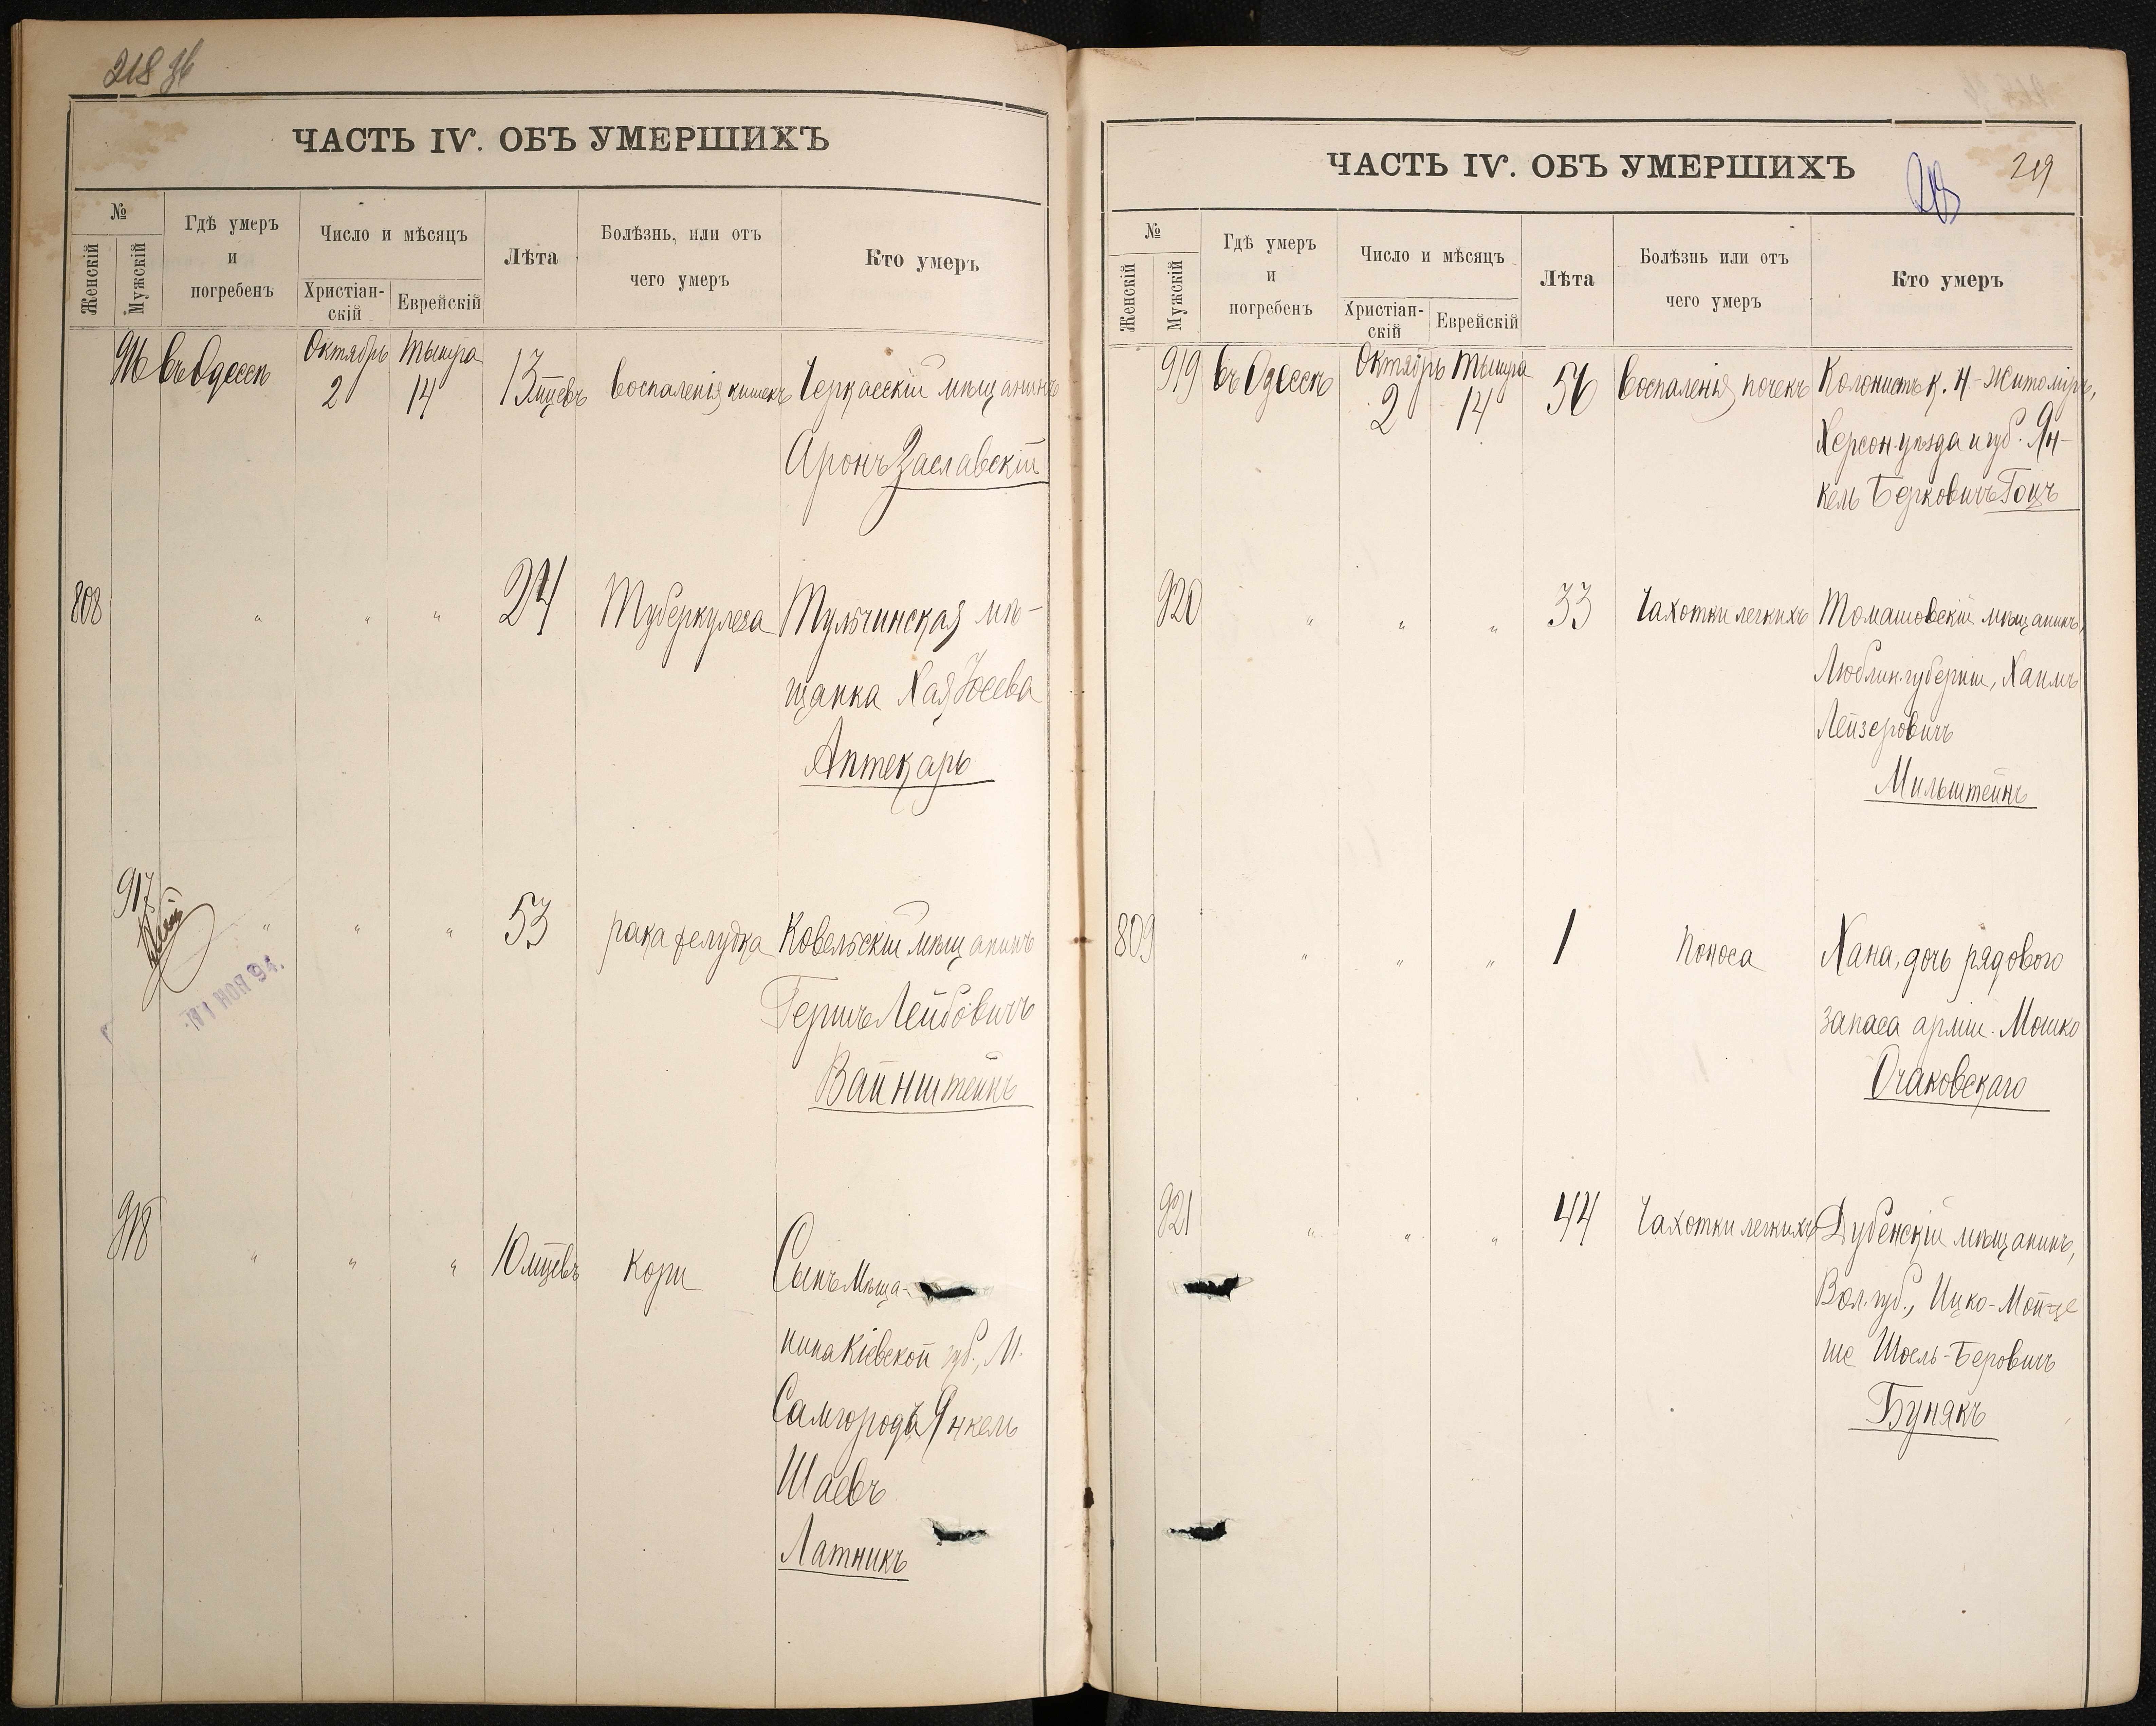 218 об
ЧАСТЬ IV. ОБЪ УМЕРШИХЪ
№
Женскій
Мужскій
Гдѣ умеръ
и
погребенъ
Число и мѣсяцъ
Христіан-
скій
Еврейскій
Лѣта
Болѣзнь, или отъ
чего умеръ
Кто умеръ
916 въ Одессѣ Октябрь 2 Тышра 14 13 мцевъ воспаленія кишекъ Черкасскій мѣщанинъ
Аронъ Заславскій
808 " " " 24 Туберкулеза Тульчинская мѣ-
щанка Хая Іосева
Аптекарь
917 " " " 53 рака желудка Ковельскій мѣщанинъ
Гершъ Лейбовичъ
Вайнштейнъ
НОЯ 94.
918 " " " 10 мцевъ кори Сынъ Мѣща-
нина Кіевской губ., М.
Самгородъ Янкель
Шаевъ
Латникъ
ЧАСТЬ IV. ОБЪ УМЕРШИХЪ
219
№
Женскій
Мужскій
Гдѣ умеръ
и
погребенъ
Число и мѣсяцъ
Христіан-
скій
Еврейскій
Лѣта
Болѣзнь или отъ
чего умеръ
Кто умеръ
919 въ Одессѣ Октябрь 2 Тышра 14 56 воспаленія почекъ Колонистъ к. Н-Житоміръ,
Херсон. уѣзда и губ. Ян-
кель Берковичъ Гоцъ
920 " " " 33 Чахотки легкихъ Томашовскій мѣщанинъ,
Люблин. губерніи, Хаимъ
Лейзеровичъ
Мильштейнъ
809 " " " 1 Поноса Хана, дочь рядового
запаса арміи Мошко
Очаковскаго
921 " " " 44 Чахотки легкихъ Дубенскій мѣщанинъ,
Вол. губ., Ицко-Мойше
Шоель-Беровичъ
Бунякъ